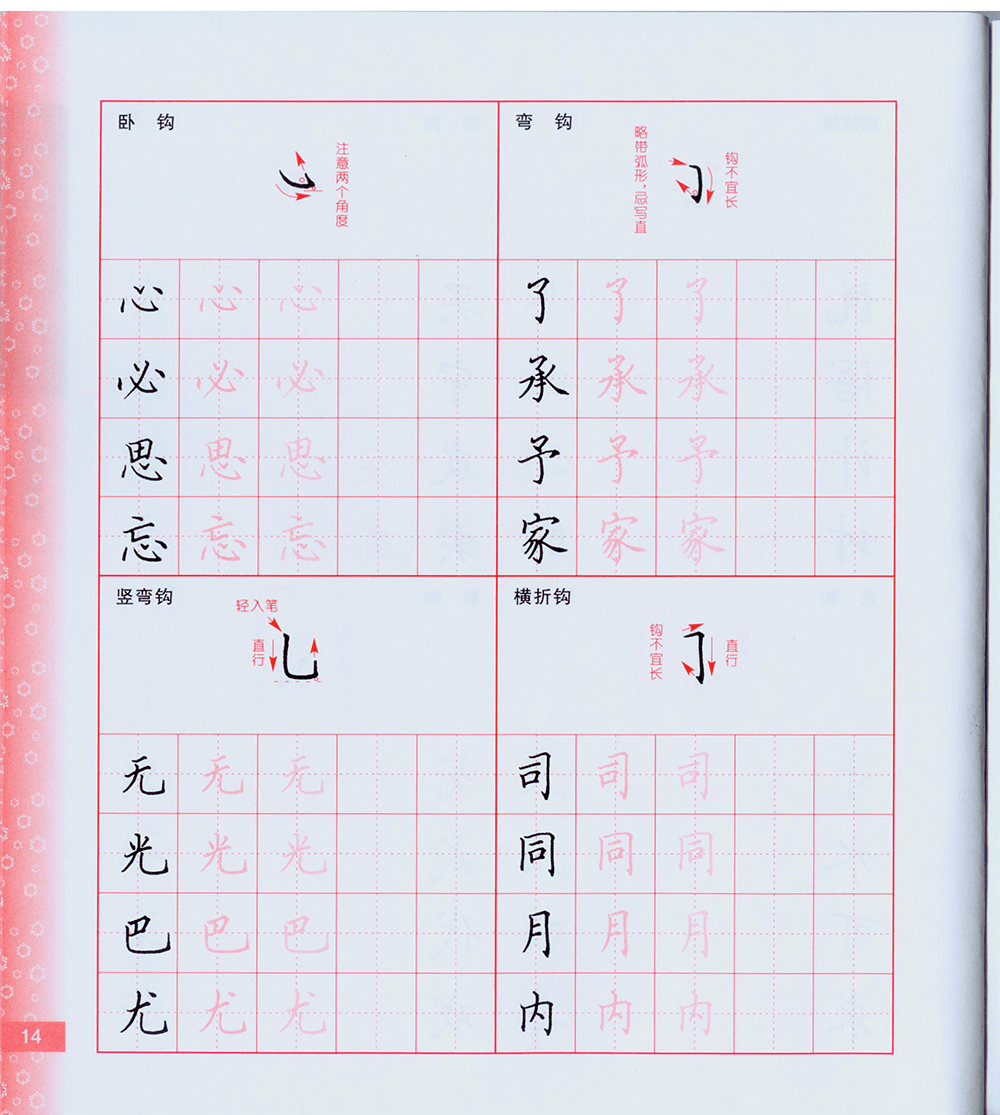 卧 钩
注意两个角度
心 心 心
必 必 必
思 思 思
忘 忘 忘
弯 钩
略带弧形，忌写直
钩不宜长
了 了 了
承 承 承
予 予 予
家 家 家
竖弯钩
轻入笔
直行
无 无 无
光 光 光
巴 巴 巴
尤 尤 尤
横折钩
钩不宜长
直行
司 司 司
同 同 同
月 月 月
内 内 内
14